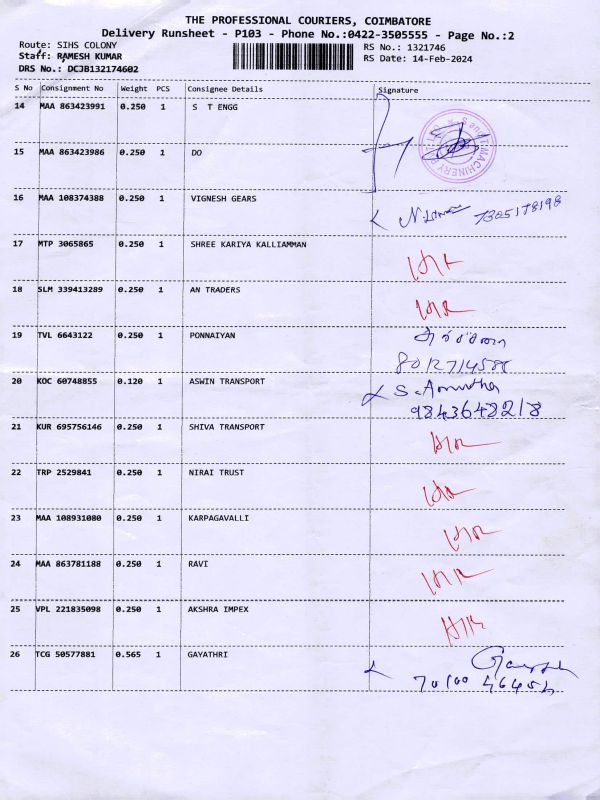 THE PROFESSIONAL COURIERS, COIMBATORE
Delivery Runsheet - P103 - Phone No.:0422-3505555 - Page No.:2
Route: SIHS COLONY RS No.: 1321746
Staff: RAMESH KUMAR RS Date: 14-Feb-2024
DRS No.: DCJB132174602
S No Consignment No Weight PCS Consignee Details Signature
14 MAA 863423991 0.250 1 S T ENGG
15 MAA 863423986 0.250 1 DO
MACHINERY
16 MAA 108374388 0.250 1 VIGNESH GEARS
7305178198
17 MTP 3065865 0.250 1 SHREE KARIYA KALLIAMMAN
18 SLM 339413289 0.250 1 AN TRADERS
19 TVL 6643122 0.250 1 PONNAIYAN
20 KOC 60748855 0.120 1 ASWIN TRANSPORT S. Amutha
9843648218
21 KUR 695756146 0.250 1 SHIVA TRANSPORT
22 TRP 2529841 0.250 1 NIRAI TRUST
23 MAA 108931080 0.250 1 KARPAGAVALLI
24 MAA 863781188 0.250 1 RAVI
25 VPL 221835098 0.250 1 AKSHRA IMPEX
26 TCG 50577881 0.565 1 GAYATHRI